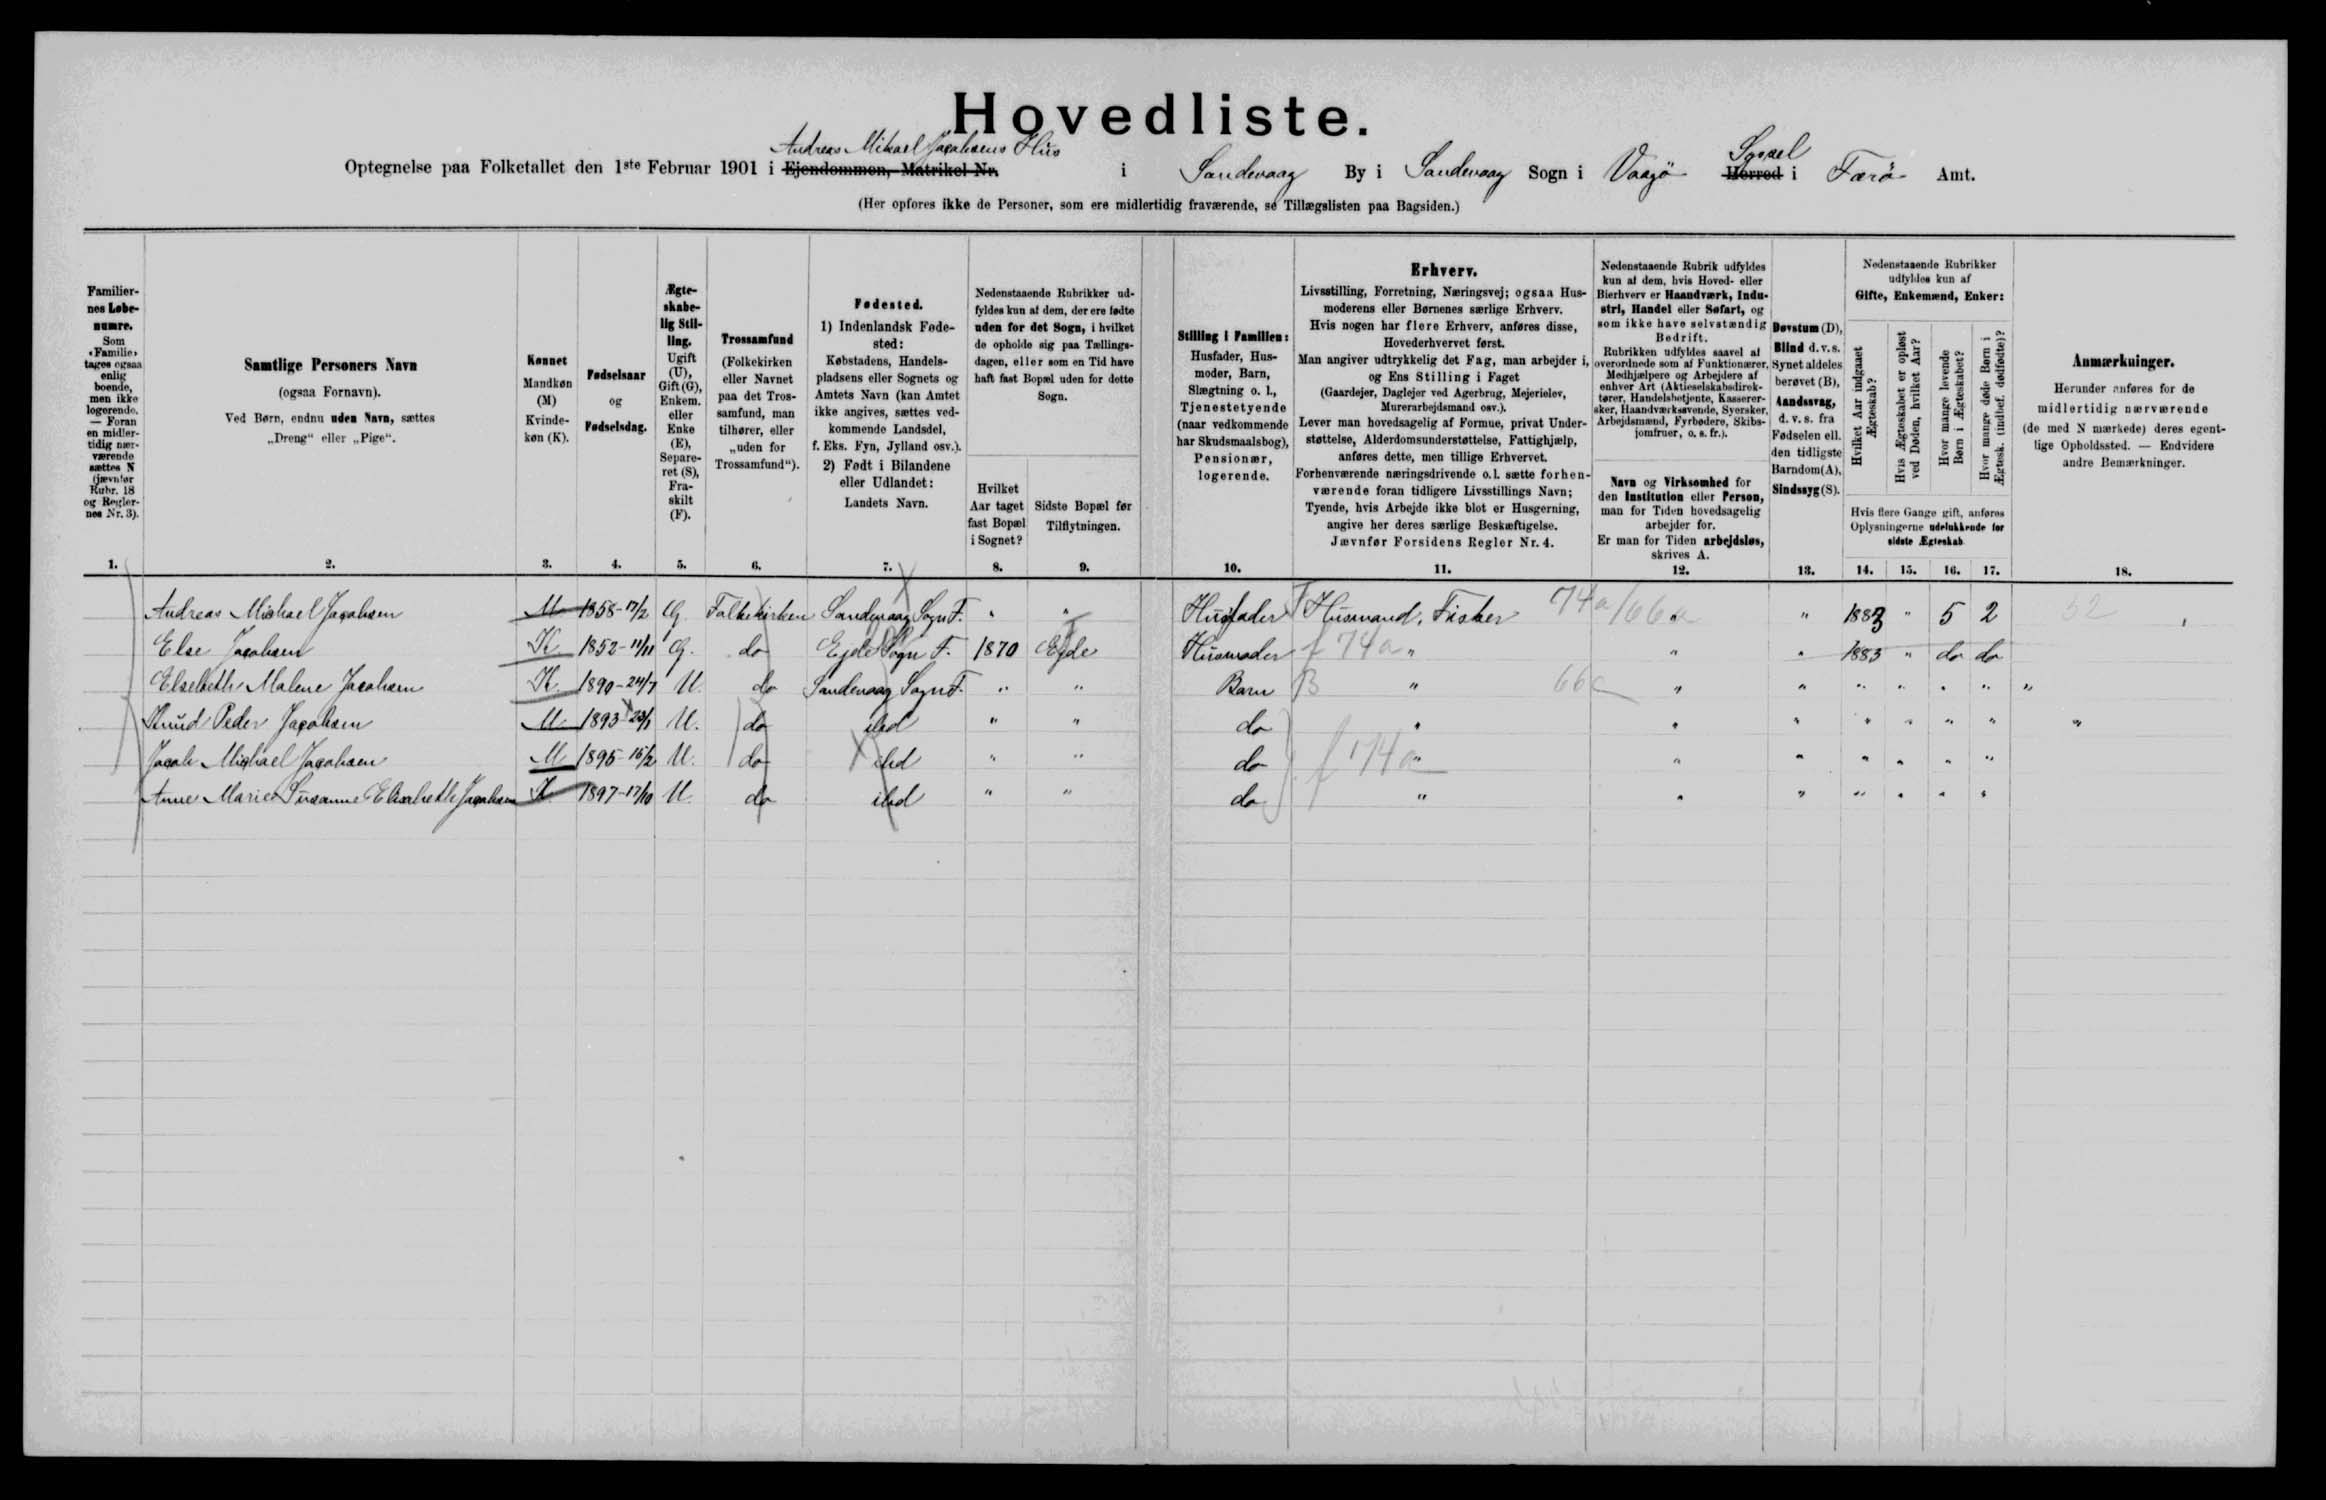 Hovedliste.
Andreas Mikael Jacobsens Hus
Syssel
Optegnelse paa Folketallet den 1ste Februar 1901 i Ejendommen, Matrikel Nr. i Sandevaag By i Sandevaag Sogn i Vaagø Herred i Færø Amt.
(Her opføres ikke de Personer, som ere midlertidig fraværende, se Tillægslisten paa Bagsiden.)
Familier-
nes Løbe-
numre.
Som
«Familie»
tages ogsaa
enlig
boende,
men ikke
logerende.
— Foran
en midler-
tidig nær-
værende
sættes N
(jævnfør
Rubr. 18
og Regler-
nes Nr. 3).
1.
Samtlige Personers Navn
(ogsaa Fornavn).
Ved Børn, endnu uden Navn, sættes
„Dreng“ eller „Pige“.
2.
Kønnet
Mandkøn
(M)
Kvinde-
køn (K).
3.
Fødselsaar
og
Fødselsdag.
4.
Ægte-
skabe-
lig Stil-
ling.
Ugift
(U),
Gift (G),
Enkem.
eller
Enke
(E),
Separe-
ret (S),
Fra-
skilt
(F).
5.
Trossamfund
(Folkekirken
eller Navnet
paa det Tros-
samfund, man
tilhører, eller
„uden for
Trossamfund“).
6.
Fødested.
1) Indenlandsk Føde-
sted:
Købstadens, Handels-
pladsens eller Sognets og
Amtets Navn (kan Amtet
ikke angives, sættes ved-
kommende Landsdel,
f. Eks. Fyn, Jylland osv.).
2) Født i Bilandene
eller Udlandet:
Landets Navn.
7.
Nedenstaaende Rubrikker ud-
fyldes kun af dem, der ere fødte
uden for det Sogn, i hvilket
de opholde sig paa Tællings-
dagen, eller som en Tid have
haft fast Bopæl uden for dette
Sogn.
Hvilket
Aar taget
fast Bopæl
i Sognet?
8.
Sidste Bopæl før
Tilflytningen.
9.
Stilling i Familien:
Husfader, Hus-
moder, Barn,
Slægtning o. l.,
Tjenestetyende
(naar vedkommende
har Skudsmaalsbog),
Pensionær,
logerende.
10.
Erhverv.
Livsstilling, Forretning, Næringsvej; ogsaa Hus-
moderens eller Børnenes særlige Erhverv.
Hvis nogen har flere Erhverv, anføres disse,
Hovederhvervet først.
Man angiver udtrykkelig det Fag, man arbejder i,
og Ens Stilling i Faget
(Gaardejer, Daglejer ved Agerbrug, Mejerielev,
Murerarbejdsmand osv.).
Lever man hovedsagelig af Formue, privat Under-
støttelse, Alderdomsunderstøttelse, Fattighjælp,
anføres dette, men tillige Erhvervet.
Forhenværende næringsdrivende o.l. sætte forhen-
værende foran tidligere Livsstillings Navn;
Tyende, hvis Arbejde ikke blot er Husgerning,
angive her deres særlige Beskæftigelse.
Jævnfør Forsidens Regler Nr. 4.
11.
Nedenstaaende Rubrik udfyldes
kun af dem, hvis Hoved- eller
Bierhverv er Haandværk, Indu-
stri, Handel eller Søfart, og
som ikke have selvstændig
Bedrift.
Rubrikken udfyldes saavel af
overordnede som af Funktionærer,
Medhjælpere og Arbejdere af
enhver Art (Aktieselskabsdirek-
tører, Handelsbetjente, Kasserer-
sker, Haandværkssvende, Syersker,
Arbejdsmænd, Fyrbødere, Skibs-
jomfruer, o. s. fr.).
Navn og Virksomhed for
den Institution eller Person,
man for Tiden hovedsagelig
arbejder for.
Er man for Tiden arbejdsløs,
skrives A.
12.
Døvstum (D),
Blind d. v. s.
Synet aldeles
berøvet (B),
Aandssvag,
d. v. s. fra
Fødselen ell.
den tidligste
Barndom (A),
Sindssyg (S).
13.
Nedenstaaende Rubrikker
udfyldes kun af
Gifte, Enkemænd, Enker:
Hvilket Aar indgaaet
Ægteskab?
Hvis Ægteskabet er opløst
ved Døden, hvilket Aar?
Hvor mange levende
Børn i Ægteskabet?
Hvor mange døde Børn i
Ægtesk. (indbef. dødfødte)?
Hvis flere Gange gift, anføres
Oplysningerne udelukkende for
sidste Ægteskab
14. 15. 16. 17.
Anmærkninger.
Herunder anføres for de
midlertidig nærværende
(de med N mærkede) deres egent-
lige Opholdssted. — Endvidere
andre Bemærkninger.
18.
Andreas Michael Jacobsen M 1858-17/2 G. Folkekirken Sandevaag Sogn F. " " Husfader Husmand, Fisker 74a/66a " " 1883 " 5 2 52
Else Jacobsen K 1852-11/11 G. do Ejde Sogn F. 1870 Ejde Husmoder f 74a " " " 1883 " do do
Elsebeth Malene Jacobsen K. 1890-24/7 U. do Sandevaag Sogn F. " " Barn B " 66a " " " " " " "
Knud Peder Jacobsen M 1893-23/1 U. do ibd " " do " " " " " " " "
Jacob Michael Jacobsen M 1895-15/2 U. do ibd " " do f 174a " " " " " " "
Anne Marie Susanne Elisabeth Jacobsen K 1897-17/10 U. do ibd " " do " " " " " " "